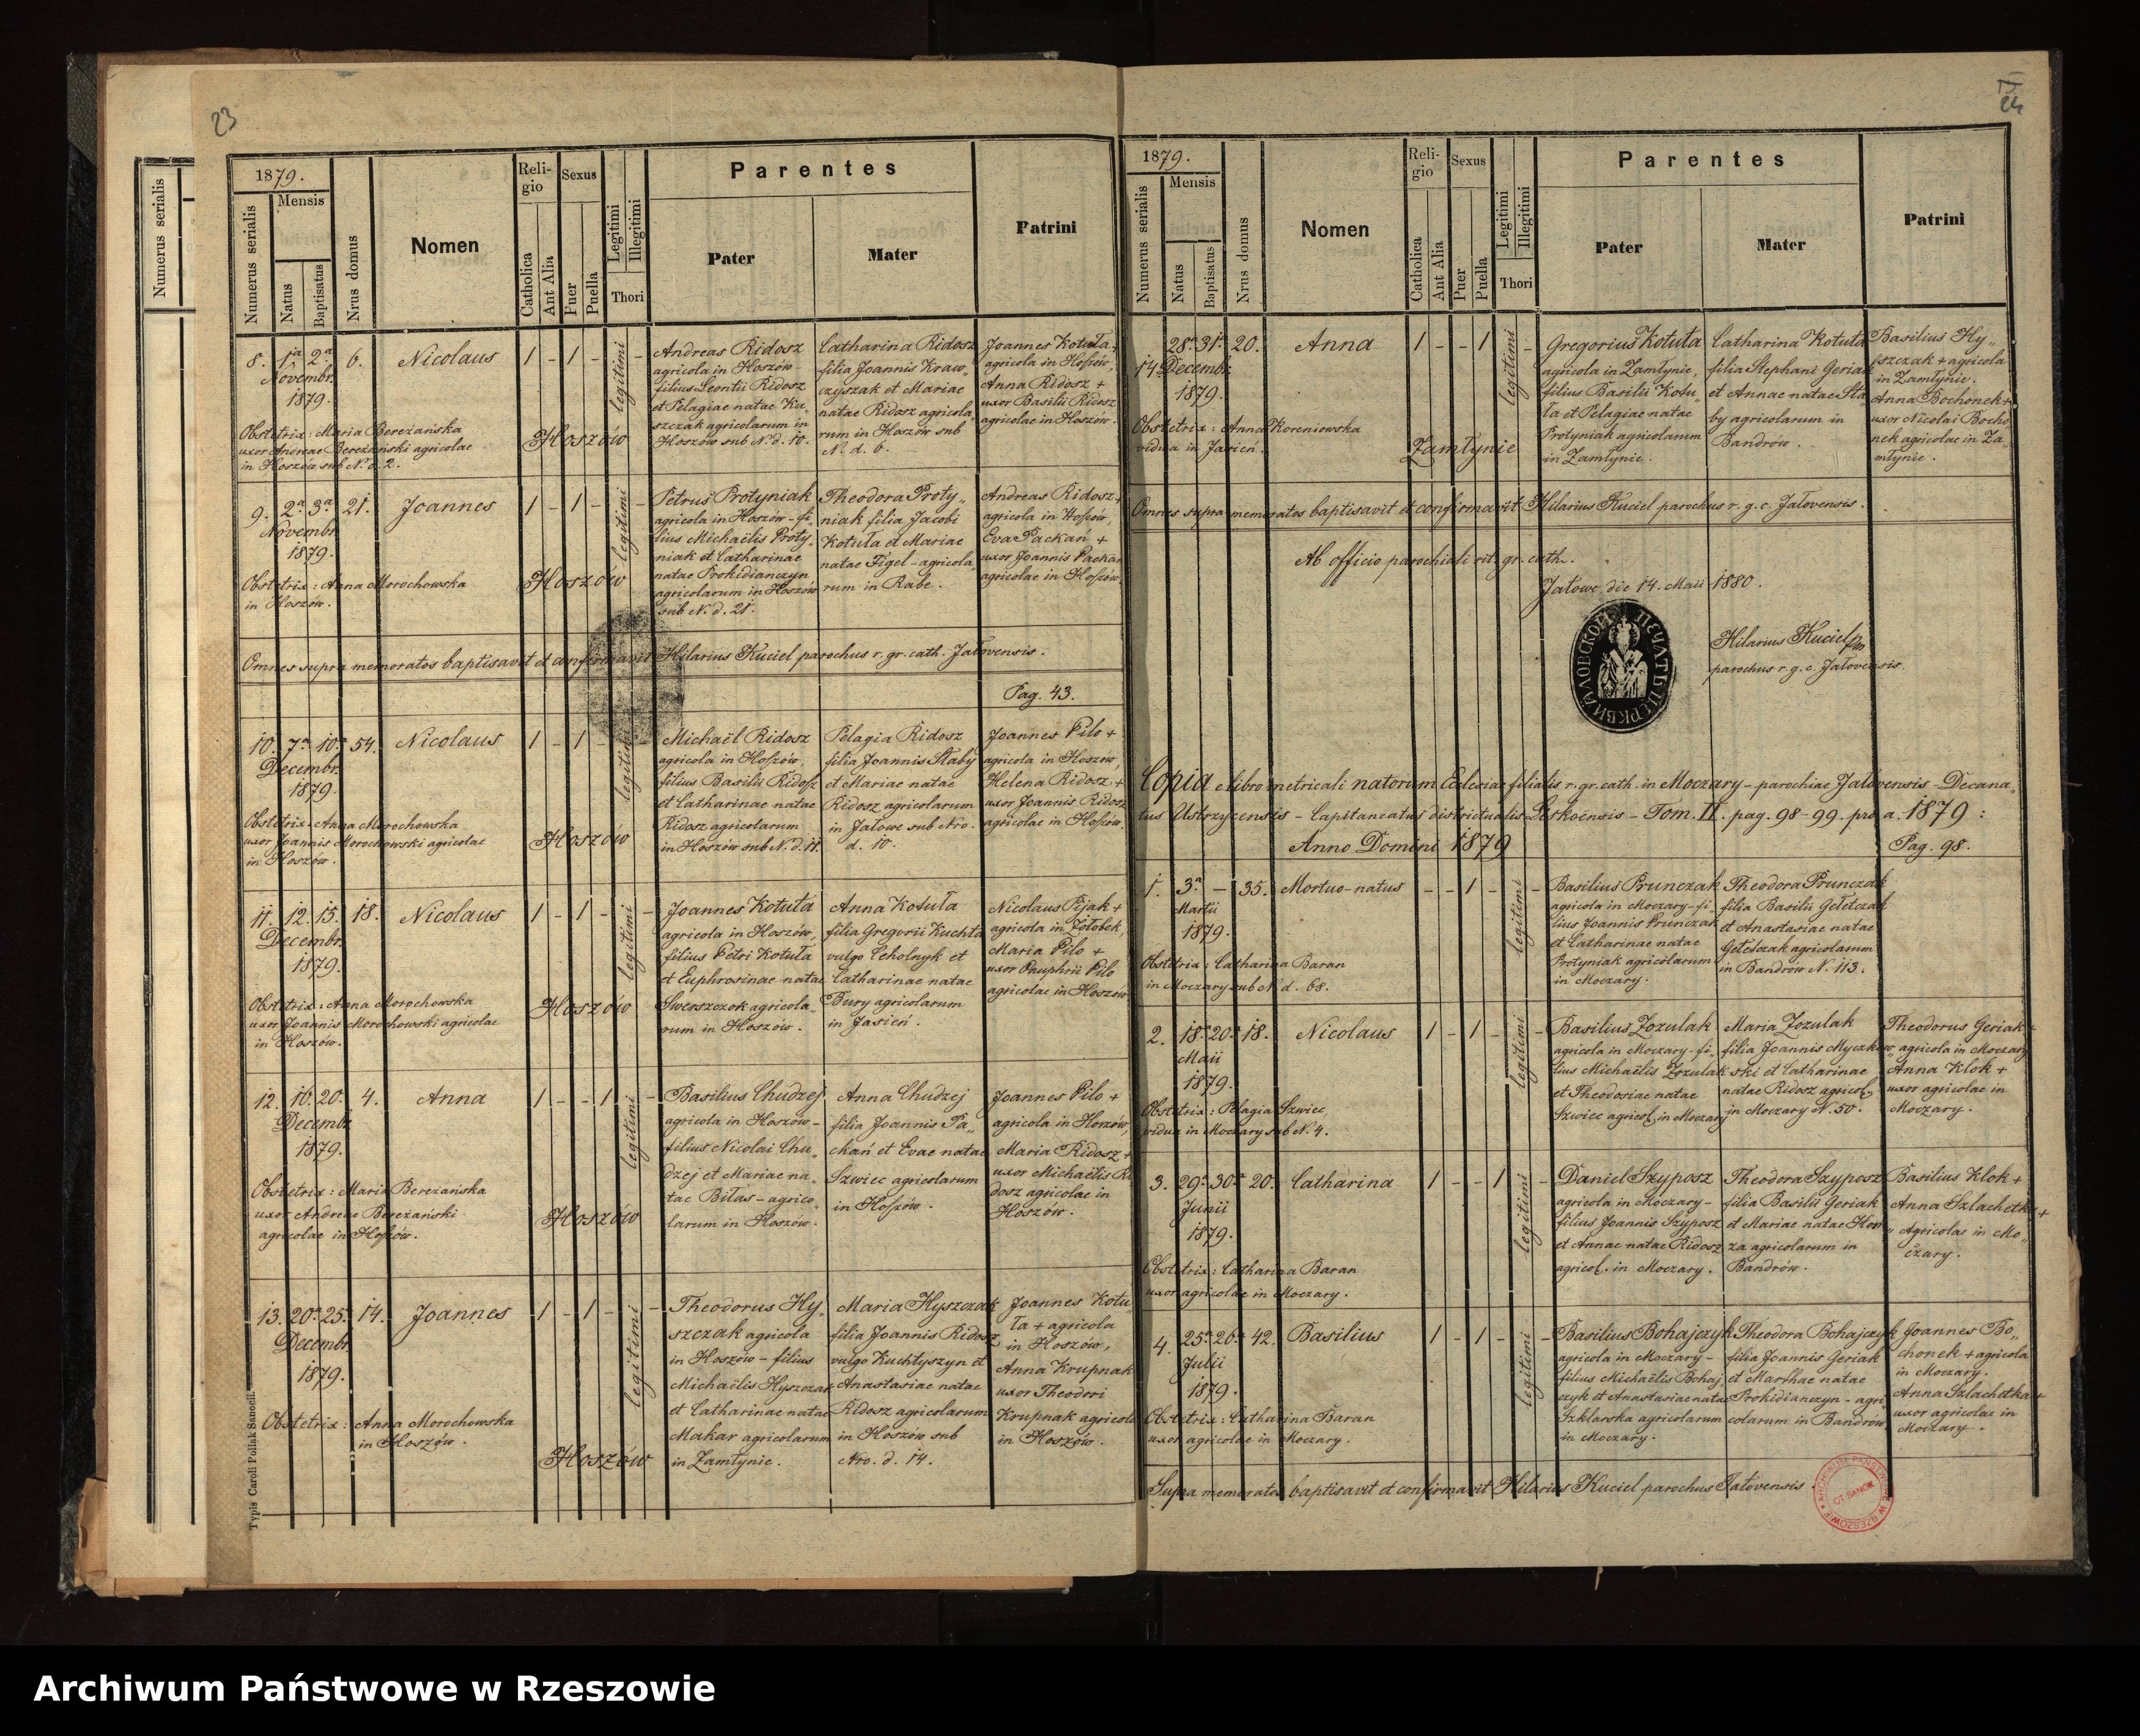 23
1879.
Mensis
Numerus serialis
Natus
Baptisatus
Nrus domus
Nomen
Religio
Catholica
Aut Alia
Sexus
Puer
Puella
Legitimi
Illegitimi
Thori
Parentes
Pater
Mater
Patrini
8. 1a 2a 6. Nicolaus 1 - 1 - legitimi -
Novembr.
1879.
Obstetrix: Maria Bereżańska
uxor Andreae Bereżański agricolae
in Hoszów sub N. d. 2.
Hoszów
Andreas Ridosz
agricola in Hoszów -
filius Leontii Ridosz
et Pelagiae natae
szczak agricolarum in
Hoszów sub N. d. 10.
Catharina Ridosz
filia Joannis Kraw„
czyszak et Mariae
natae Ridosz agricola„
rum in Hoszów sub
N. d. 6.
Joannes Kotuła +
agricola in Hoszów,
Anna Ridosz +
uxor Basilii Ridosz
agricolae in Hoszów.
9. 2a 3a 21. Joannes 1 - 1 - legitimi -
Novembr.
1879.
Obstetrix: Anna Morochowska
in Hoszów.
Hoszów
Petrus Protyniak
agricola in Hoszów - fi„
lius Michaëlis Proty„
niak et Catharinae
natae Prokidianczyn
agricolarum in Hoszów
sub N. d. 21.
Theodora Proty„
niak filia Jacobi
Kotuła et Mariae
natae Figel - agricola„
rum in Rabe.
Andreas Ridosz +
agricola in Hoszów,
Eva Packań +
uxor Joannis Packań
agricolae in Hoszów.
Omnes supra memoratos baptisavit et confirmavit Hilarius Kuciel parochus r. gr. cath. Jałovensis.
Pag. 43.
10. 7a 10a 54. Nicolaus 1 - 1 - legitimi -
Decembr.
1879.
Obstetrix: Anna Morochowska
uxor Joannis Morochowski agricolae
in Hoszów.
Hoszów
Michaël Ridosz
agricola in Hoszów,
filius Basilii Ridosz
et Catharinae natae
Ridosz agricolarum
in Hoszów sub N. d. 11.
Pelagia Ridosz
filia Joannis Słaby
et Mariae natae
Ridosz agricolarum
in Jałowe sub Nro.
d. 10.
Joannes Pilo +
agricola in Hoszów,
Helena Ridosz +
uxor Joannis Ridosz
agricolae in Hoszów.
11. 12. 15. 18. Nicolaus 1 - 1 - legitimi -
Decembr.
1879.
Obstetrix: Anna Morochowska
uxor Joannis Morochowski agricolae
in Hoszów.
Hoszów
Joannes Kotuła
agricola in Hoszów,
filius Petri Kotuła
et Euphrosinae natae
Sweroszczok agricola„
rum in Hoszów.
Anna Kotuła
filia Gregorii Kuchta
vulgo Ceholnyk et
Catharinae natae
Bury agricolarum
in Jasień.
Nicolaus Pijak +
agricola in Żołobek,
Maria Pilo +
uxor Onuphrii Pilo
agricolae in Hoszów
12. 16. 20. 4. Anna 1 - - 1 legitimi -
Decembr.
1879.
Obstetrix: Maria Bereżańska
uxor Andreae Bereżański
agricolae in Hoszów.
Hoszów
Basilius Chudzej
agricola in Hoszów -
filius Nicolai Chu„
dzej et Mariae na„
tae Biłas - agrico„
larum in Hoszów.
Anna Chudzej
filia Joannis Pa„
ckań et Evae natae
Szwiec agricolarum
in Hoszów.
Joannes Pilo +
agricola in Hoszów,
Maria Ridosz +
uxor Michaëlis Ri
dosz agricolae in
Hoszów.
13. 20a 25a 14. Joannes 1 - 1 - legitimi -
Decembr.
1879.
Obstetrix: Anna Morochowska
in Hoszów.
Hoszów
Theodorus Hy„
szczak agricola
in Hoszów - filius
Michaëlis Hyszczak
et Catharinae natae
Makar agricolarum
in Zamłynie.
Maria Hyszczak
filia Joannis Ridosz
vulgo Kuchtyszyn et
Anastasiae natae
Ridosz agricolarum
in Hoszów sub
Nro. d. 14.
Joannes Kotu„
ła + agricola
in Hoszów,
Anna Krupnak
uxor Theodori
Krupnak agricolae
in Hoszów.
Typis Caroli Pollak Sanocii.
Numerus serialis
24
1879.
Mensis
Numerus serialis
Natus
Baptisatus
Nrus domus
Nomen
Religio
Catholica
Aut Alia
Sexus
Puer
Puella
Legitimi
Illegitimi
Thori
Parentes
Pater
Mater
Patrini
14. 28a 31. 20. Anna 1 - - 1 legitimi -
Decembr.
1879.
Obstetrix: Anna Koreniowska
vidua in Jasień.
Zamłynie
Gregorius Kotuła
agricola in Zamłynie,
filius Basilii Kotu„
ła et Pelagiae natae
Protyniak agricolarum
in Zamłynie.
Catharina Kotuła
filia Stephani Geriak
et Annae natae Sła„
by agricolarum in
Bandrów.
Basilius Hy„
szczak + agricola
in Zamłynie.
Anna Bochonek +
uxor Nicolai Bocho„
nek agricolae in Za„
młynie.
Omnes supra memoratos baptisavit et confirmavit Hilarius Kuciel parochus r. g. c. Jałovensis.
Ab officio parochiali rit. gr. cath.
Jałowe die 14. Maii 1880.
ПЕЧАТЬ ЦЕРКВИ ЯЛОВСКОЙ
Hilarius Kuciel
parochus r. g. c. Jałovensis.
Copia e libro metricali natorum Eclesiae filialis r. gr. cath. in Moczary - parochiae Jałovensis - Decana„
tus Ustrzycensis - Capitaneatus districtualis Leskoënsis - Tom. II. pag. 98 - 99. pro a. 1879:
Anno Domini 1879
Pag. 98.
1. 3a - 35. Mortuo-natus - - 1 - legitimi -
Martii
1879.
Obstetrix: Catharina Baran
in Moczary sub N. d. 68.
Basilius Prunczak
agricola in Moczary - fi„
lius Joannis Prunczak
et Catharinae natae
Protyniak agricolarum
in Moczary.
Theodora Prunczak
filia Basilii Gełetczak
et Anastasiae natae
Gełetczak agricolarum
in Bandrów N. 113.
2. 18a 20a 18. Nicolaus 1 - 1 - legitimi -
Maii
1879.
Obstetrix: Pelagia Szwiec,
vidua in Moczary sub N. 4.
Basilius Zozulak
agricola in Moczary - fi„
lius Michaëlis Zozulak
et Theodosiae natae
Szwiec agricol. in Moczary
Maria Zozulak
filia Joannis Myczkow„
ski et Catharinae
natae Ridosz agricol.
in Moczary N. 50.
Theodorus Geriak +
agricola in Moczary
Anna Klok +
uxor agricolae in
Moczary.
3. 29a 30a 20. Catharina 1 - - 1 legitimi -
Junii
1879.
Obstetrix: Catharina Baran
uxor agricolae in Moczary.
Daniel Szyposz
agricola in Moczary -
filius Joannis Szyposz
et Annae natae Ridosz
agricol. in Moczary.
Theodora Szyposz
filia Basilii Geriak
et Mariae natae
za agricolarum in
Bandrów.
Basilius Klok +
Anna Szlachetka +
Agricolae in Mo„
czary.
4. 25a 26a 42. Basilius 1 - 1 - legitimi -
Julii
1879.
Obstetrix: Catharina Baran
uxor agricolae in Moczary.
Basilius Bohajczyk
agricola in Moczary -
filius Michaëlis Bohaj
czyk et Anastasiae natae
Szklarska agricolarum
in Moczary.
Theodora Bohajczyk
filia Joannis Geriak
et Marthae natae
Prokidianczyn - agri„
colarum in Bandrów
Joannes Bo„
chonek + agricola
in Moczary.
Anna Szlachetka +
uxor agricolae in
Moczary.
Supra memoratos baptisavit et confirmavit Hilarius Kuciel parochus Jałovensis.
ARCHIWUM PAŃSTWOWE W RZESZOWIE
OT SANOK
Archiwum Państwowe w Rzeszowie